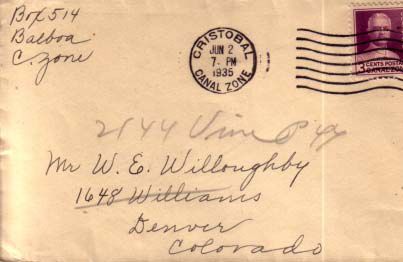 Box 514
Balboa
C Zone
CRISTOBAL
JUN 2
7- PM
1935
CANAL ZONE
3 CENTS POSTAGE
CANAL ZONE
2144 Vine
Mr W. E. Willoughby
1648 Williams
Denver
Colorado